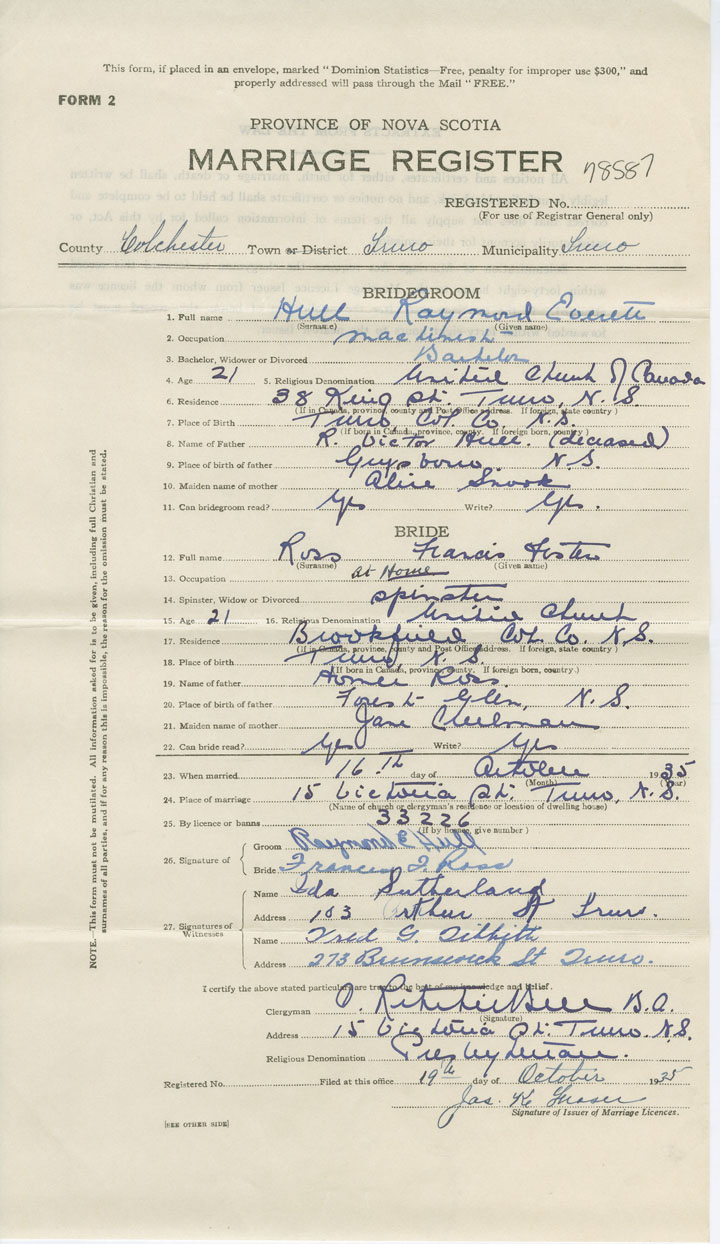 This form, if placed in an envelope, marked "Dominion Statistics—Free, penalty for improper use $300," and
properly addressed will pass through the Mail "FREE."
FORM 2
PROVINCE OF NOVA SCOTIA
MARRIAGE REGISTER 78587
REGISTERED No.
(For use of Registrar General only)
County Colchester Town or District Truro Municipality Truro
BRIDEGROOM
1. Full name Hull Raymond Everett
(Surname) (Given name)
2. Occupation machinist
3. Bachelor, Widower or Divorced Bachelor
4. Age 21 5. Religious Denomination United Church of Canada
6. Residence 38 King St. Truro, N.S.
(If in Canada, province, county and Post Office address. If foreign, state country)
7. Place of Birth Truro, Col. Co. N.S.
(If born in Canada, province, county. If foreign born, country.)
8. Name of Father R. Victor Hull. (deceased)
9. Place of birth of father Guysboro. N.S.
10. Maiden name of mother Alice Snook
11. Can bridegroom read? Yes Write? Yes.
BRIDE
12. Full name Ross Francis Foster
(Surname) (Given name)
13. Occupation at Home
14. Spinster, Widow or Divorced spinster
15. Age 21 16. Religious Denomination United Church
17. Residence Brookfield Col. Co. N.S.
(If in Canada, province, county and Post Office address. If foreign, state country)
18. Place of birth Truro, N.S.
(If born in Canada, province, county. If foreign born, country.)
19. Name of father Homer Ross.
20. Place of birth of father Forest Glen, N.S.
21. Maiden name of mother Jane
22. Can bride read? Yes Write? Yes
23. When married 16th day of October 1935
(Month) (Year)
24. Place of marriage 15 Victoria St. Truro, N.S.
(Name of church or clergyman's residence or location of dwelling house)
25. By licence or banns 33226
(If by licence, give number)
26. Signature of Groom Raymond E Hull
Bride Frances F. Ross
27. Signatures of Witnesses
Name Ida Sutherland
Address 103 Arthur St Truro.
Name Fred G.
Address 273 Brunswick St Truro.
I certify the above stated particulars are true to the best of my knowledge and belief.
Clergyman Bell B.A.
(Signature)
Address 15 Victoria St. Truro N.S.
Religious Denomination Presbyterian.
Registered No. Filed at this office 19th day of October 1935
Jas. K. Fraser
Signature of Issuer of Marriage Licences.
[SEE OTHER SIDE]
NOTE.—This form must not be mutilated. All information asked for is to be given, including full Christian and
surnames of all parties, and if for any reason this is impossible, the reason for the omission must be stated.